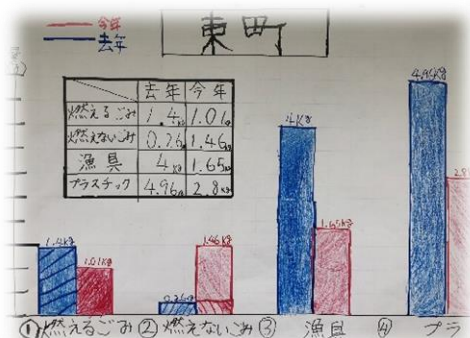 今年
去年
東町
去年 今年
燃えるごみ 1.4kg 1.01kg
燃えないごみ 0.26kg 1.46kg
漁具 4kg 1.65kg
プラスチック 4.96kg 2.8kg
1.4kg 1.01kg 0.26kg 1.46kg 4kg 1.65kg 4.96kg 2.8
①燃えるごみ ②燃えないごみ ③ 漁具 ④ プラ